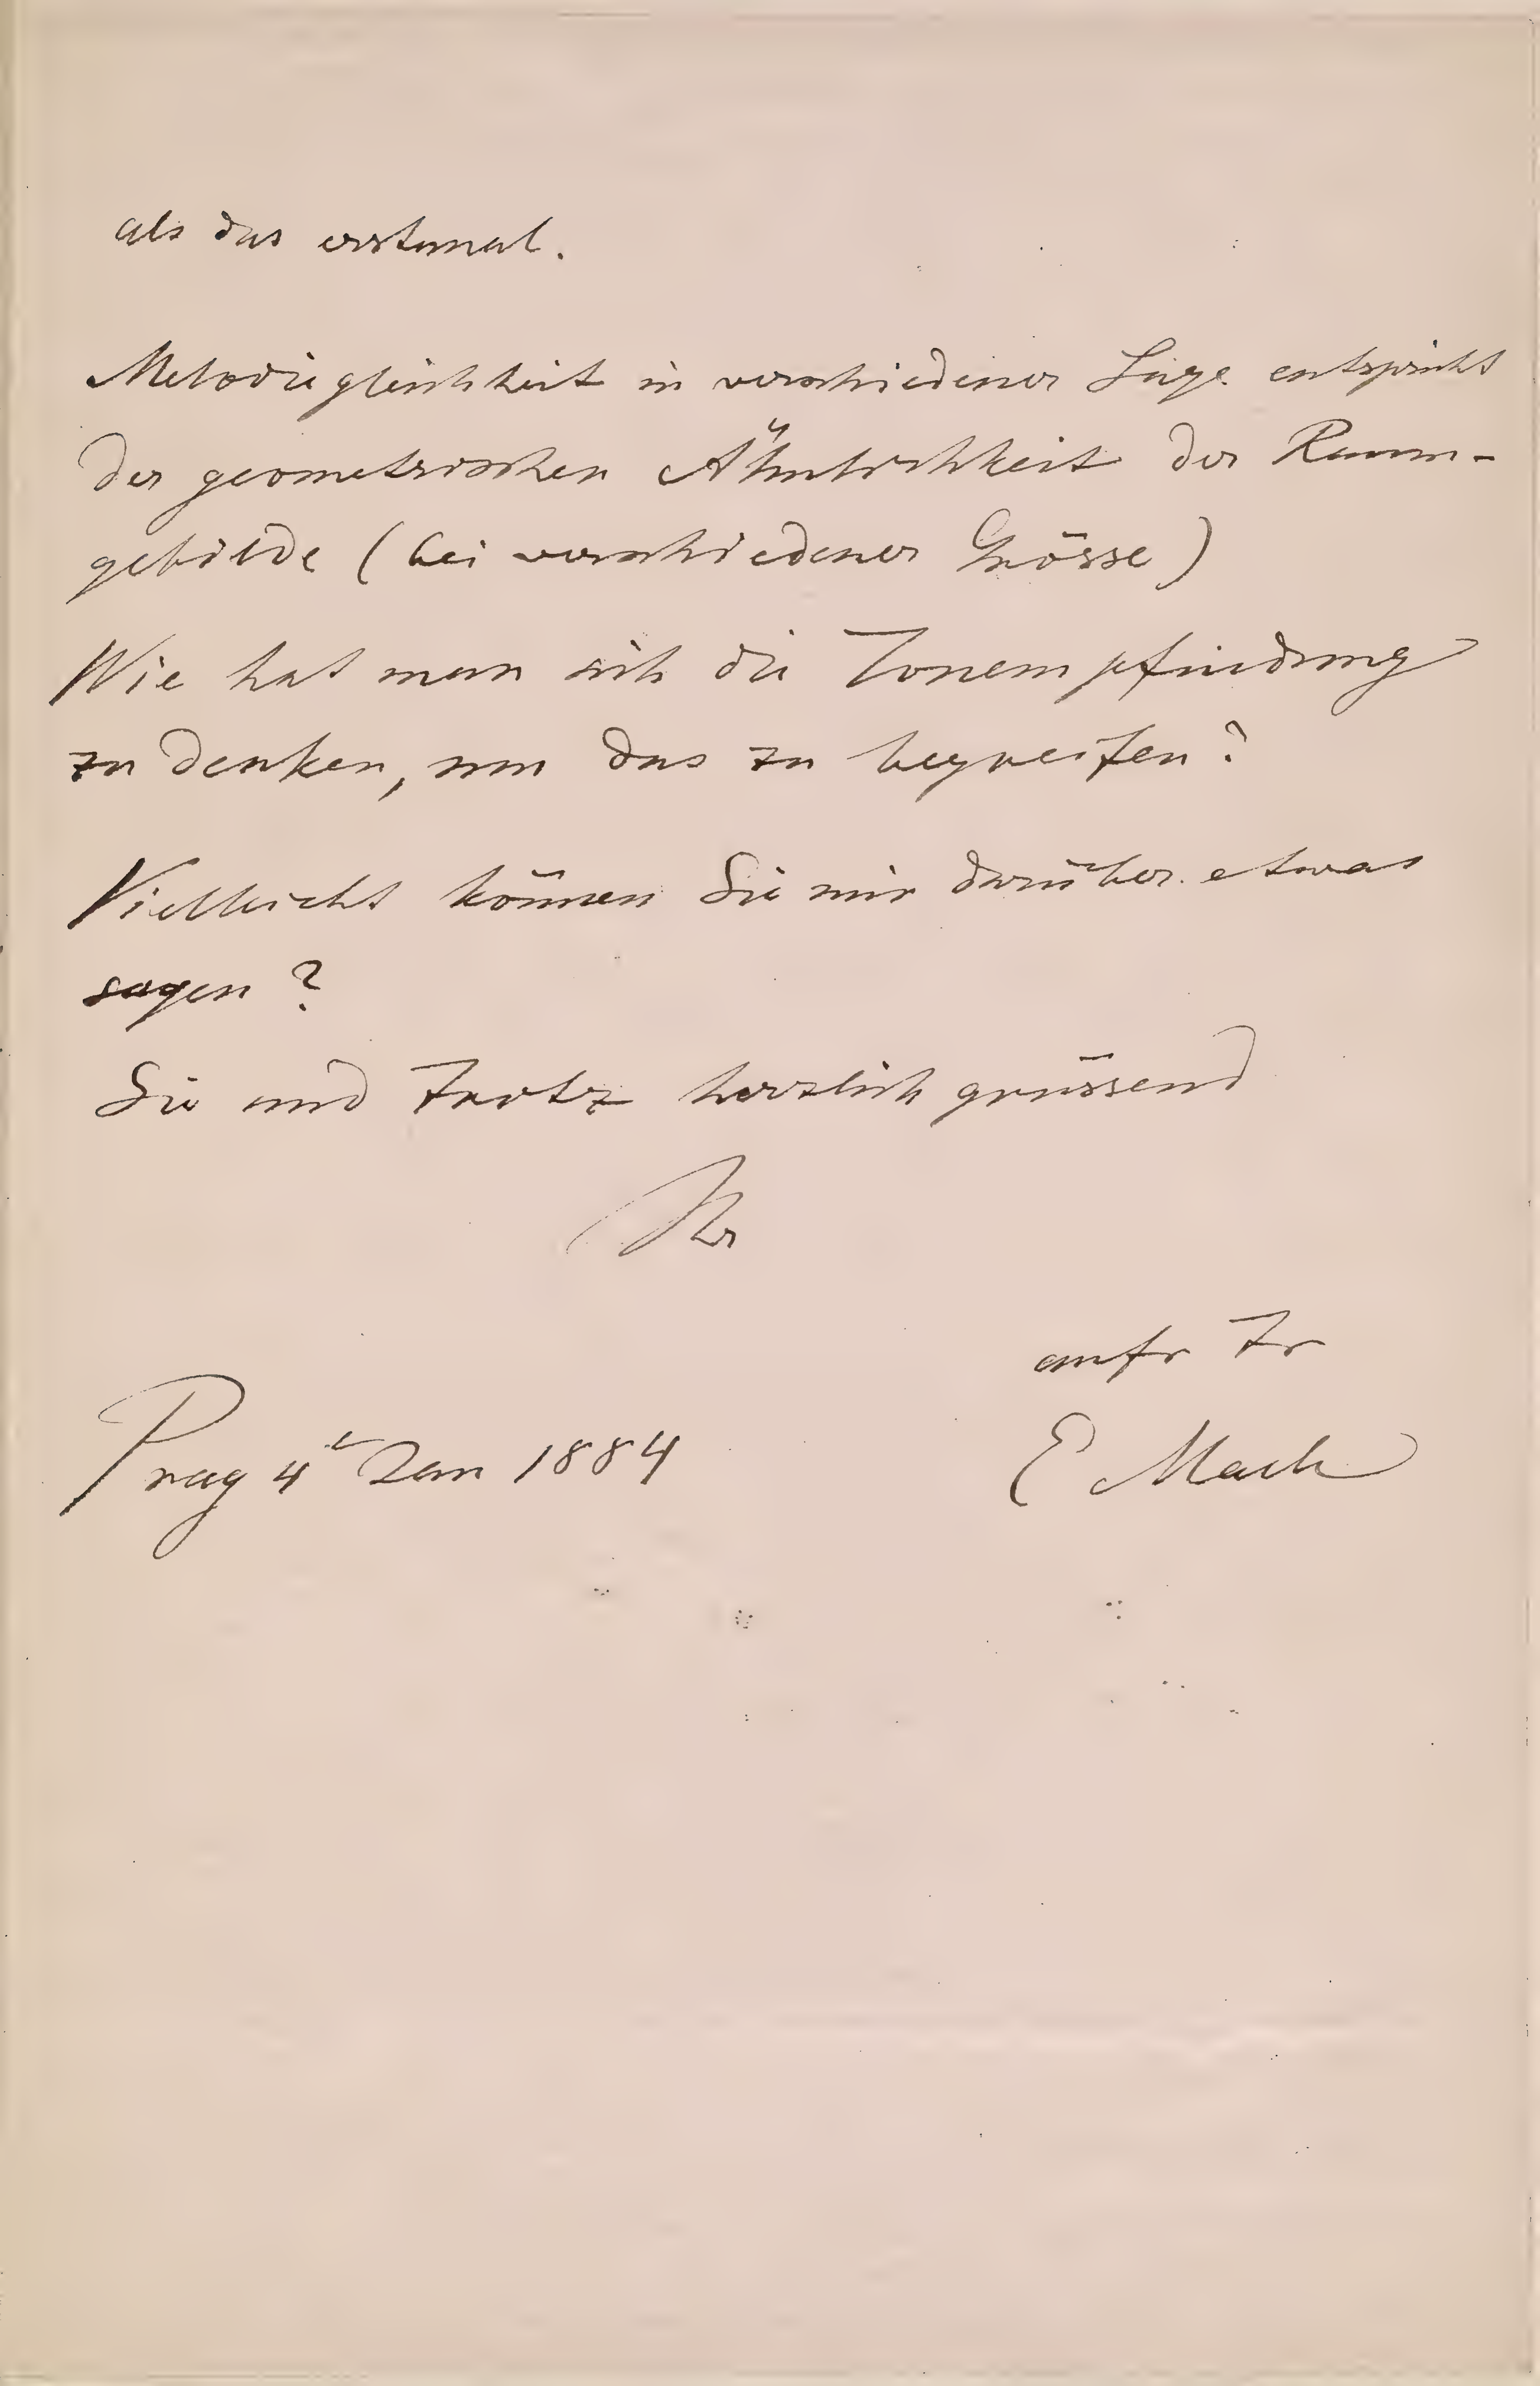 als das erstemal.
Melodiegleichheit in verschiedener Lage entspricht
der geometrischen Ähnlichkeit der Raum-
gebilde (bei verschiedener Grösse)
Wie hat man sich die Tonempfindung
zu denken, um das zu begreifen?
Vielleicht können Sie mir darüber etwas
sagen?
Sie und herzlich grüssend
Ihr
aufr Fr
Prag 4t Jan 1884
E Mach